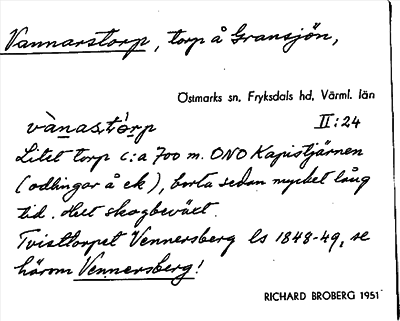 Vannarstorp, torp å Gransjön,
Östmarks sn, Fryksdals hd, Värml. län
vànastɔ́rp II:24
Litet torp c:a 700 m. ONO Kapistjärnen
(odlingar å ek), borta sedan mycket lång
tid. Helt skogbeväxt.
Tvisttorpet Vennersberg ls 1848-49, se
härom Vennersberg!
RICHARD BROBERG 1951